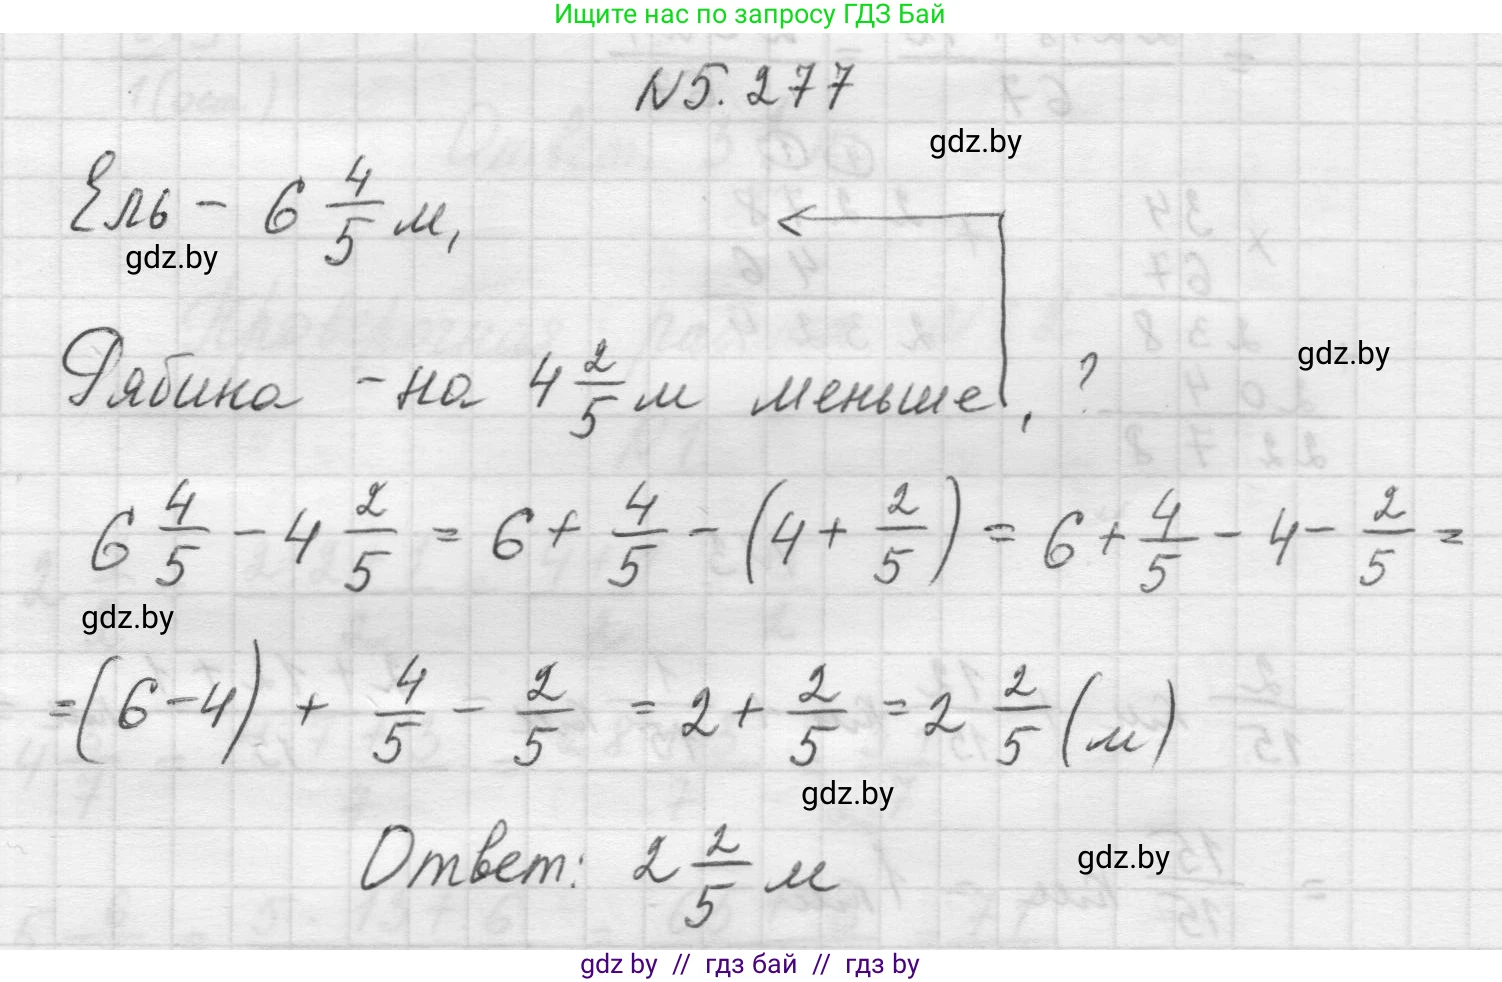 Ищите нас по запросу ГДЗ Бай
N5.277
gdz.by
Ель - 6 4/5 м,
gdz.by
Рябина - на 4 2/5 м меньше, ?
gdz.by
6 4/5 - 4 2/5 = 6 + 4/5 - (4 + 2/5) = 6 + 4/5 - 4 - 2/5 =
gdz.by
= (6 - 4) + 4/5 - 2/5 = 2 + 2/5 = 2 2/5 (м)
gdz.by
Ответ: 2 2/5 м
gdz.by
gdz by // гдз бай // гдз by